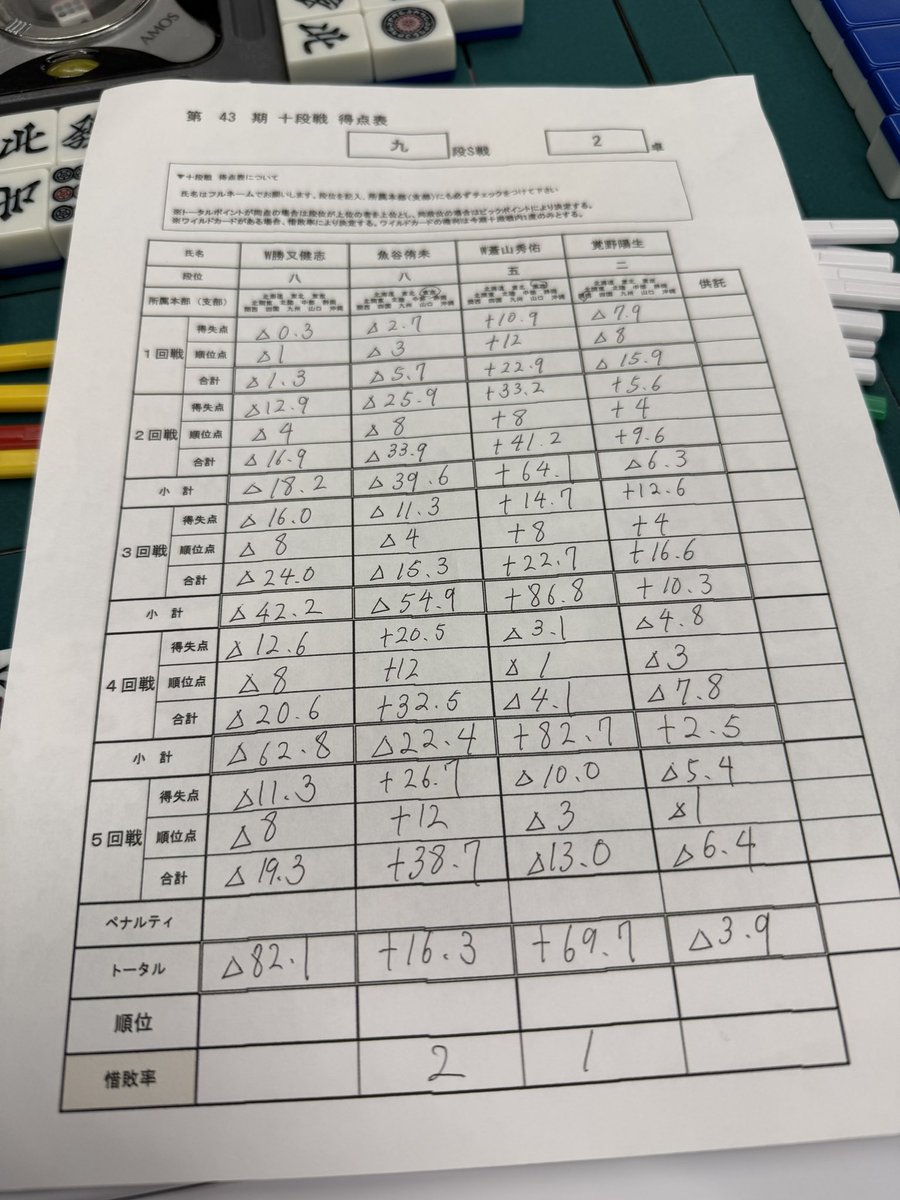 AMOS
北
北
發
第 43 期 十段戦 得点表
九 段S戦 2 卓
▼十段戦 得点表について
氏名はフルネームでお願いします。段位を記入、所属本部(支部)にも必ずチェックをつけて下さい
※トータルポイントが同点の場合は段位が上位の者を上位とし、同段位の場合はビックポイントにより決定する。
※ワイルドカードがある場合、惜敗率により決定する。ワイルドの権利は今期十段戦内1度のみとする。
氏名 W勝又健志 魚谷侑未 W蒼山秀佑 覚野陽生
段位 八 八 五 二
所属本部(支部) 供託
1回戦 得失点 △0.3 △2.7 +10.9 △7.9
順位点 △1 △3 +12 △8
合計 △1.3 △5.7 +22.9 △15.9
2回戦 得失点 △12.9 △25.9 +33.2 +5.6
順位点 △4 △8 +8 +4
合計 △16.9 △33.9 +41.2 +9.6
小計 △18.2 △39.6 +64.1 △6.3
3回戦 得失点 △16.0 △11.3 +14.7 +12.6
順位点 △8 △4 +8 +4
合計 △24.0 △15.3 +22.7 +16.6
小計 △42.2 △54.9 +86.8 +10.3
4回戦 得失点 △12.6 +20.5 △3.1 △4.8
順位点 △8 +12 △1 △3
合計 △20.6 +32.5 △4.1 △7.8
小計 △62.8 △22.4 +82.7 +2.5
5回戦 得失点 △11.3 +26.7 △10.0 △5.4
順位点 △8 +12 △3 △1
合計 △19.3 +38.7 △13.0 △6.4
ペナルティ
トータル △82.1 +16.3 +69.7 △3.9
順位
惜敗率 2 1